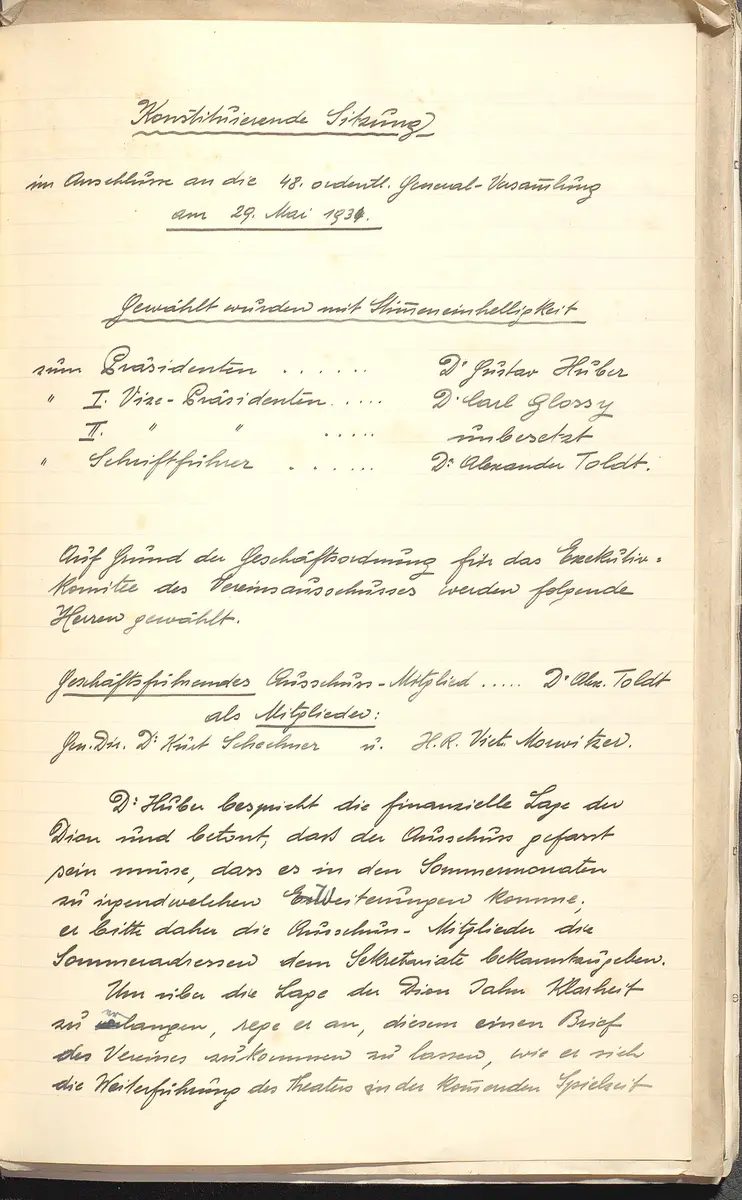 Konstituierende Sitzung
im Anschlusse an die 48. ordentl. General-Versam̅lung
am 29. Mai 1934.
Gewählt wurden mit Stim̅eneinhelligkeit
zum Präsidenten . . . . . . Dr Gustav Huber
" I. Vize-Präsidenten . . . . . Dr Carl Glossy
II. " " . . . . . unbesetzt
" Schriftführer . . . . . . Dr Alexander Toldt.
Auf Grund der Geschäftsordnung für das Exekutiv-
komitee des Vereinsausschusses werden folgende
Herren gewählt.
Geschäftsführendes Ausschuss-Mitglied ..... Dr Alex. Toldt
als Mitglieder:
Gen. Dir. Dr Kurt Schechner u. H.R. Vict. Morwitzer.
Dr Huber bespricht die finanzielle Lage der
Dion und betont, dass der Ausschuss gefasst
sein müsse, dass es in den Sommermonaten
zu irgendwelchen Weiterungen komme,
er bitte daher die Ausschuss-Mitglieder die
Sommeradressen dem Sekretariate bekanntzugeben.
Um über die Lage der Dion Jahn Klarheit
zu erlangen, rege er an, diesem einen Brief
des Vereines zukommen zu lassen, wie er sich
die Weiterführung des Theaters in der kom̅enden Spielzeit